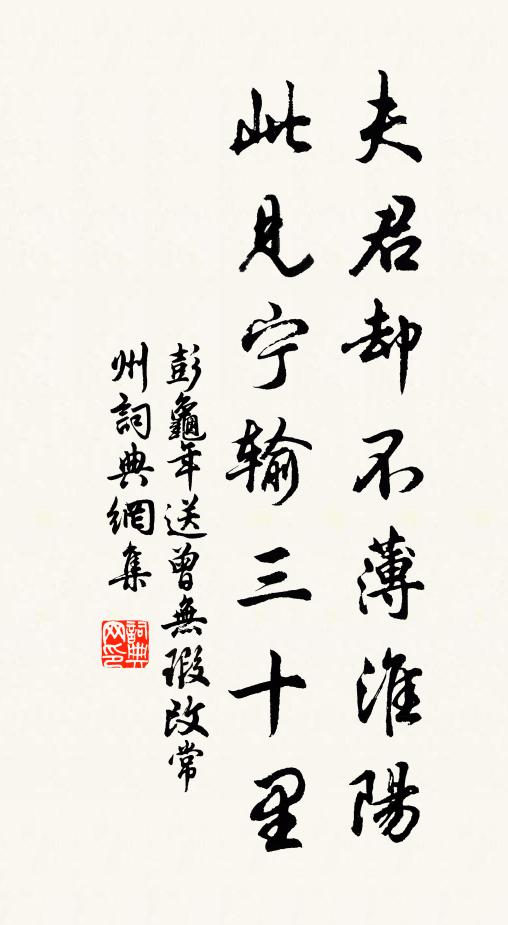 夫君却不薄淮陽
此見宁输三十里
彭龜年送曾無瑕改常
州詞典網集
詞典网印